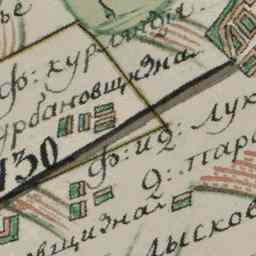 ье
ф: хурлянди
урбановщизна
130
ф: и д: лук
д: пара
овщизна
лысков